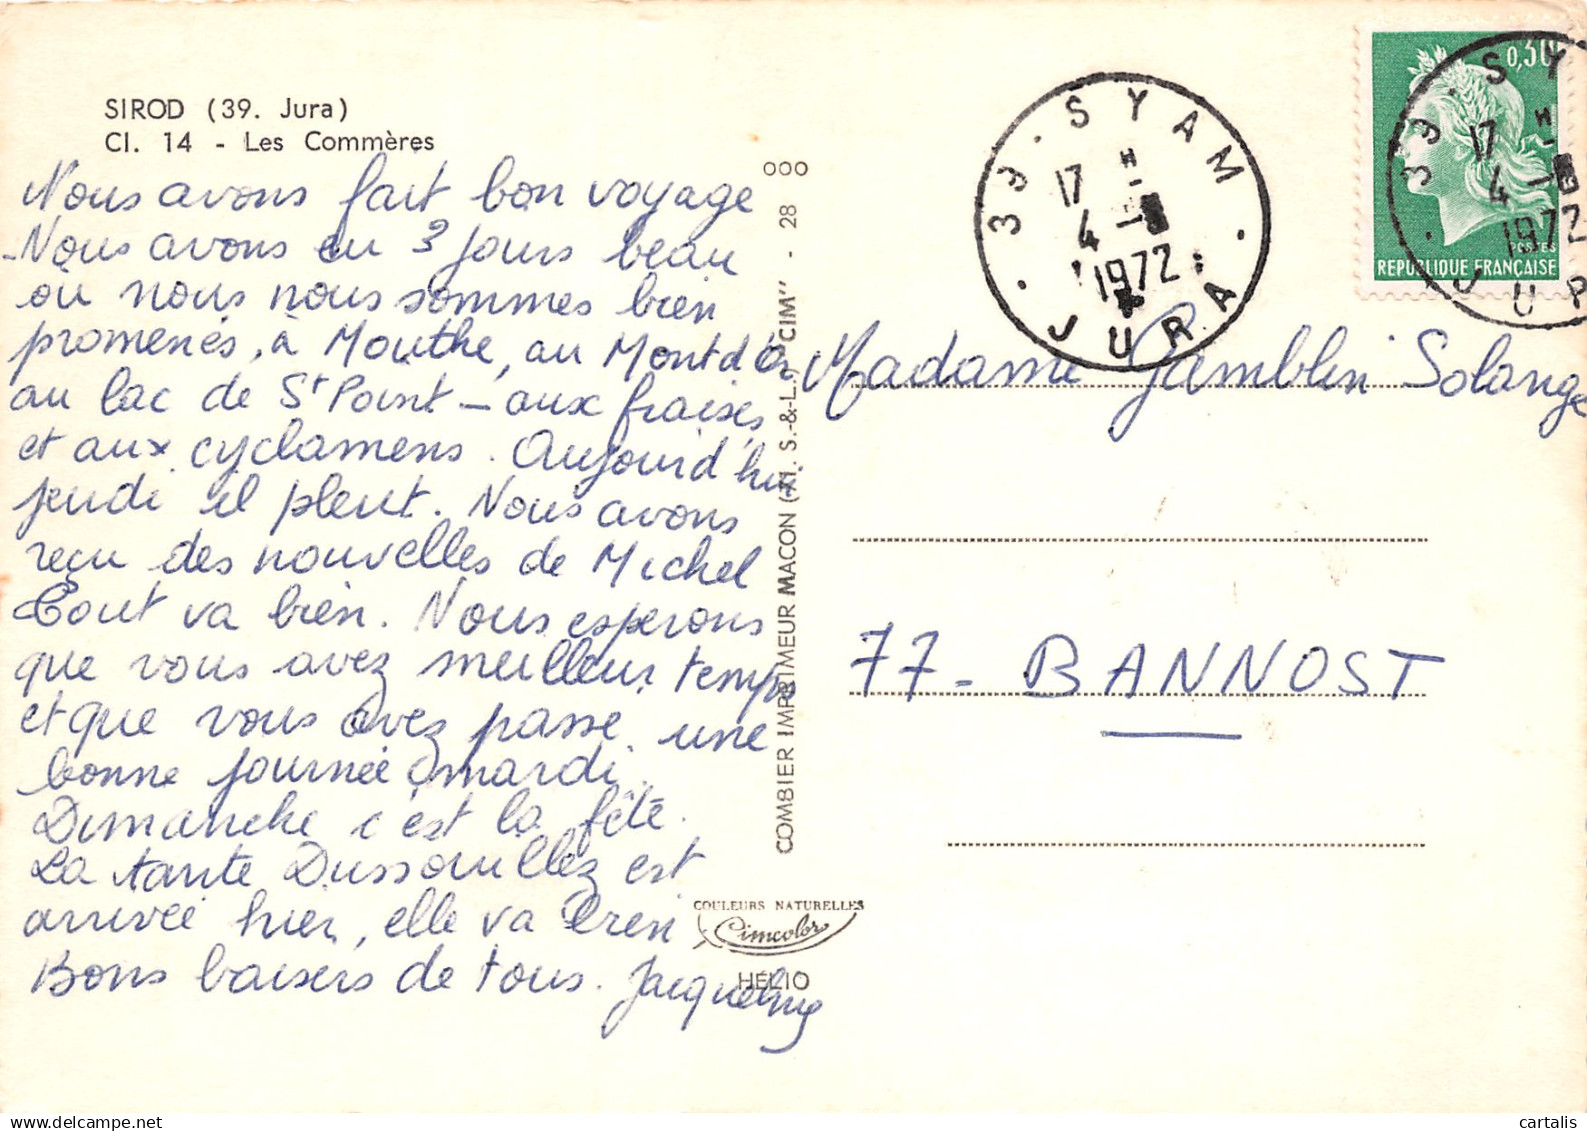 SIROD (39. Jura)
Cl. 14 - Les Commères
Nous avons fait bon voyage
Nous avons eu 3 jours beau
où nous nous sommes bien
promenés, à Mouthe, au Mont d'Or
au lac de St Point - aux fraises,
et aux cyclamens. Aujourd'hui
jeudi il pleut. Nous avons
reçu des nouvelles de Michel
Tout va bien. Nous esperons
que vous avez meilleur temps
et que vous avez passé une
bonne journée mardi.
Dimanche c'est la fête.
La tante Dussouillez est
arrivée hier, elle va bien
Bons baisers de tous. Jacqueline
000
COMBIER IMPRIMEUR MACON (S.-&-L.) "CIM" - 28
COULEURS NATURELLES
Cimcolor
HÉLIO
39 - SYAM
17 H
4 -
1972
JURA
0,30
POSTES
REPUBLIQUE FRANÇAISE
39 - SY
17 H
4 -
1972
JUR
Madame Gamblin Solange
77 - BANNOST
cartalis